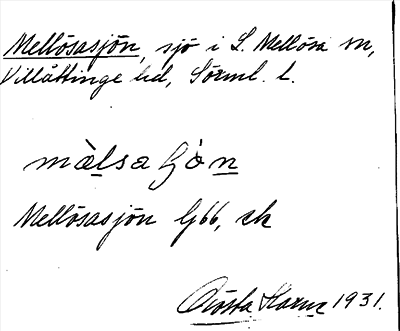 Mellösasjön, sjö i S. Mellösa sn,
Villåttinge hd, Sörml. l.
mèlsa ʃòn
Mellösasjön Gj66, ek
Gösta 1931.